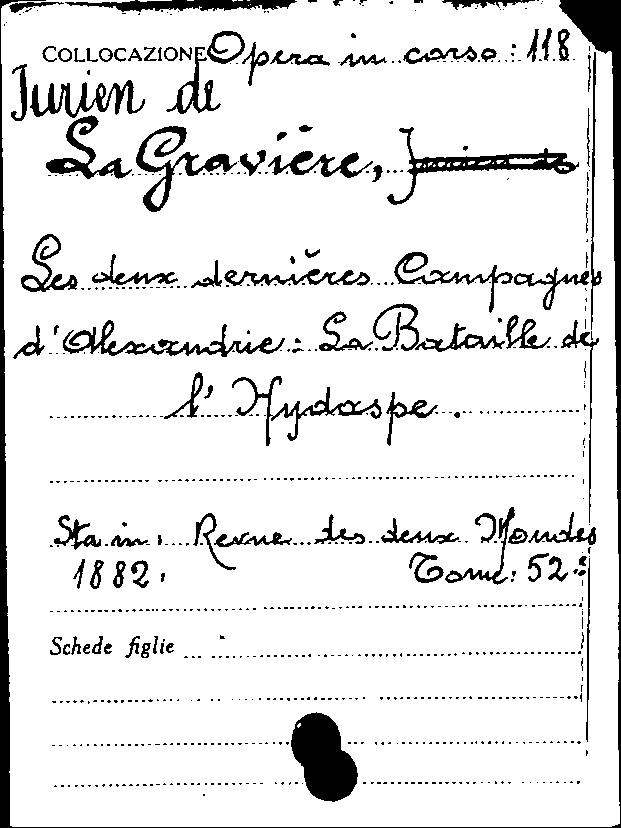 COLLOCAZIONE Opera in corso : 118
Jurien de
La Gravière, Jurien de
Les deux dernières Campagnes
d'Alexandrie : La Bataille de
l'Hydaspe.
Sta in: Revue des deux Mondes
1882. Tome: 52.e
Schede figlie